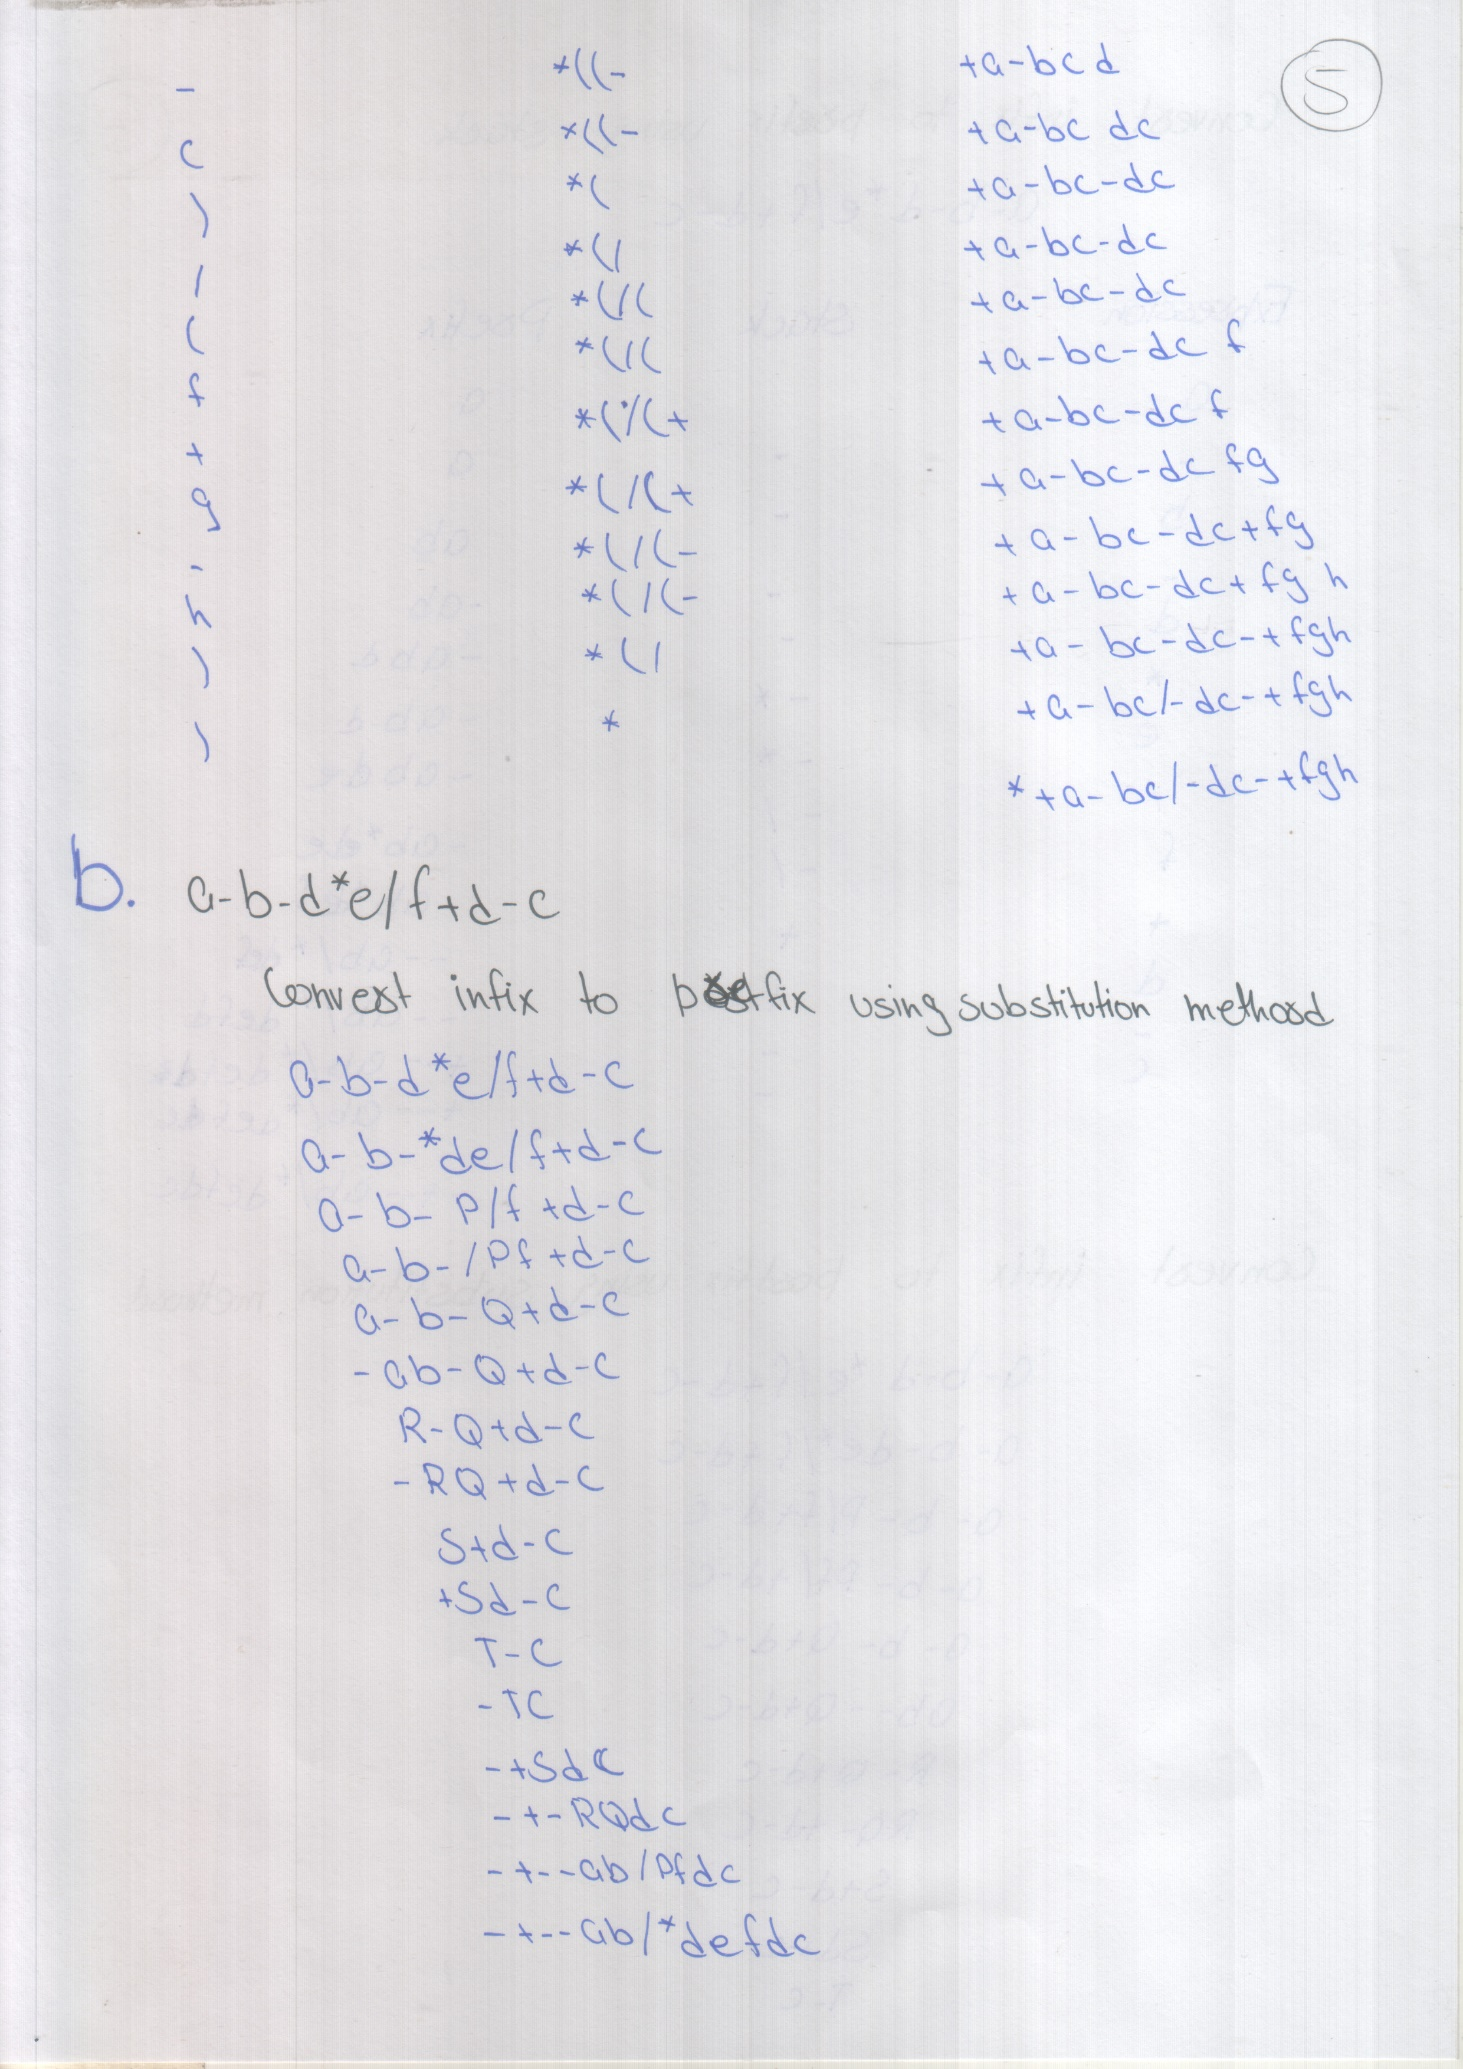 5
- *((- +a-bc d
c *((- +a-bc dc
) *( +a-bc-dc
/ *(/ +a-bc-dc
( *(/( +a-bc-dc
f *(/( +a-bc-dc f
+ *(/(+ +a-bc-dc f
g *(/(+ +a-bc-dc fg
- *(/(- +a-bc-dc+fg
h *(/(- +a-bc-dc+fg h
) *(/ +a-bc-dc-+fgh
) * +a-bc/-dc-+fgh
*+a-bc/-dc-+fgh
b. a-b-d*e/f+d-c
Convert infix to using substitution method
a-b-d*e/f+d-c
a-b-*de/f+d-c
a-b-P/f+d-c
a-b-/Pf+d-c
a-b-Q+d-c
-ab-Q+d-c
R-Q+d-c
-RQ+d-c
S+d-c
+Sd-c
T-C
-TC
-+Sdc
-+-RQdc
-+--ab/Pfdc
-+--ab/*defdc